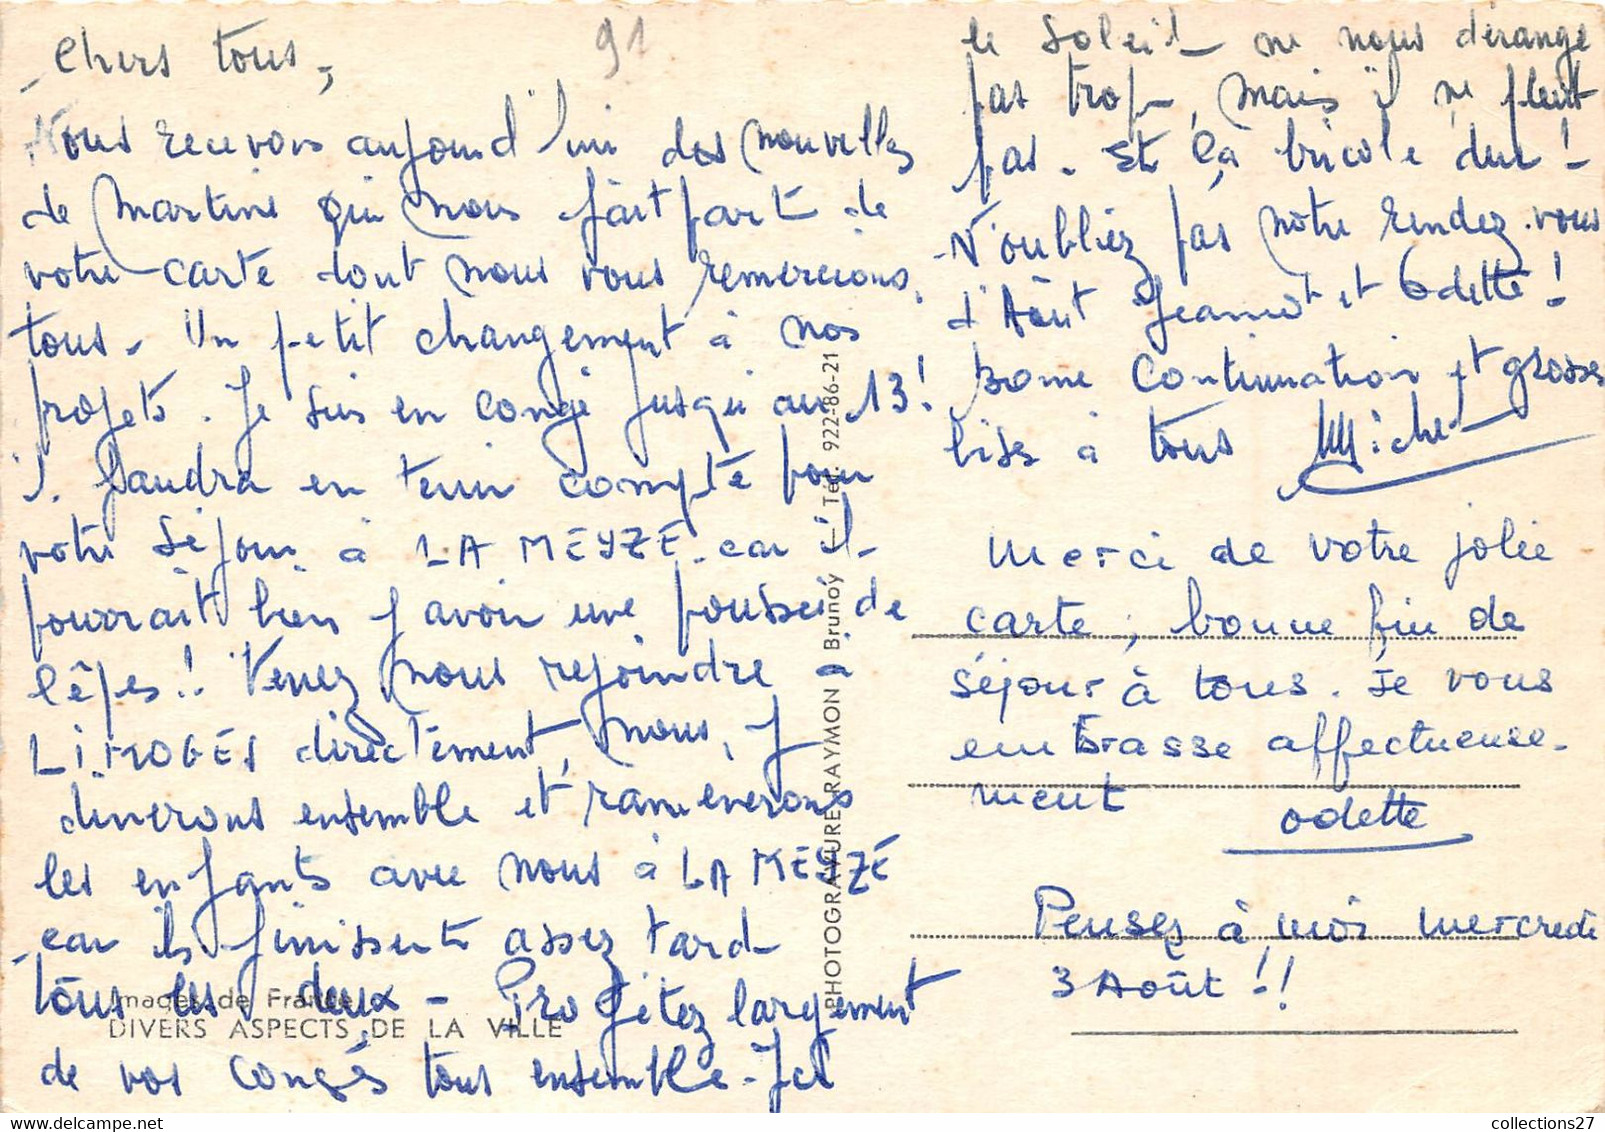 Chers tous,
91
Nous recevons aujourd'hui des nouvelles
de Martine qui nous fait part de
votre carte dont nous vous remercions
tous. Un petit changement à nos
projets. Je suis en congé jusqu'au 13!
Sandra en tenir compte pour
votre séjour à LA MEYZE car il
pourrait bien y avoir une poussée de
cêpes!! Venez nous rejoindre à
LIMOGES directement, nous y
dinerons ensemble et ramènerons
les enfants avec nous à LA MEYZE
car ils finissent assez tard
tous les deux - Profitez largement
de vos congés tous ensemble - Ici
le soleil ne nous dérange
pas trop, mais il ne pleut
pas. Et ça bricole dur!
N'oubliez pas notre rendez-vous
d'Août Jeannot et Odette!
Bonne continuation et grosses
bises à tous Michel
Merci de votre jolie
carte, bonne fin de
séjour à tous. Je vous
embrasse affectueuse-
ment
odette
Pensez à moi mercredi
3 Août!!
Images de France
DIVERS ASPECTS DE LA VILLE
PHOTOGRAVURE RAYMON Brunoy — Tél. 922-86-21
collections27